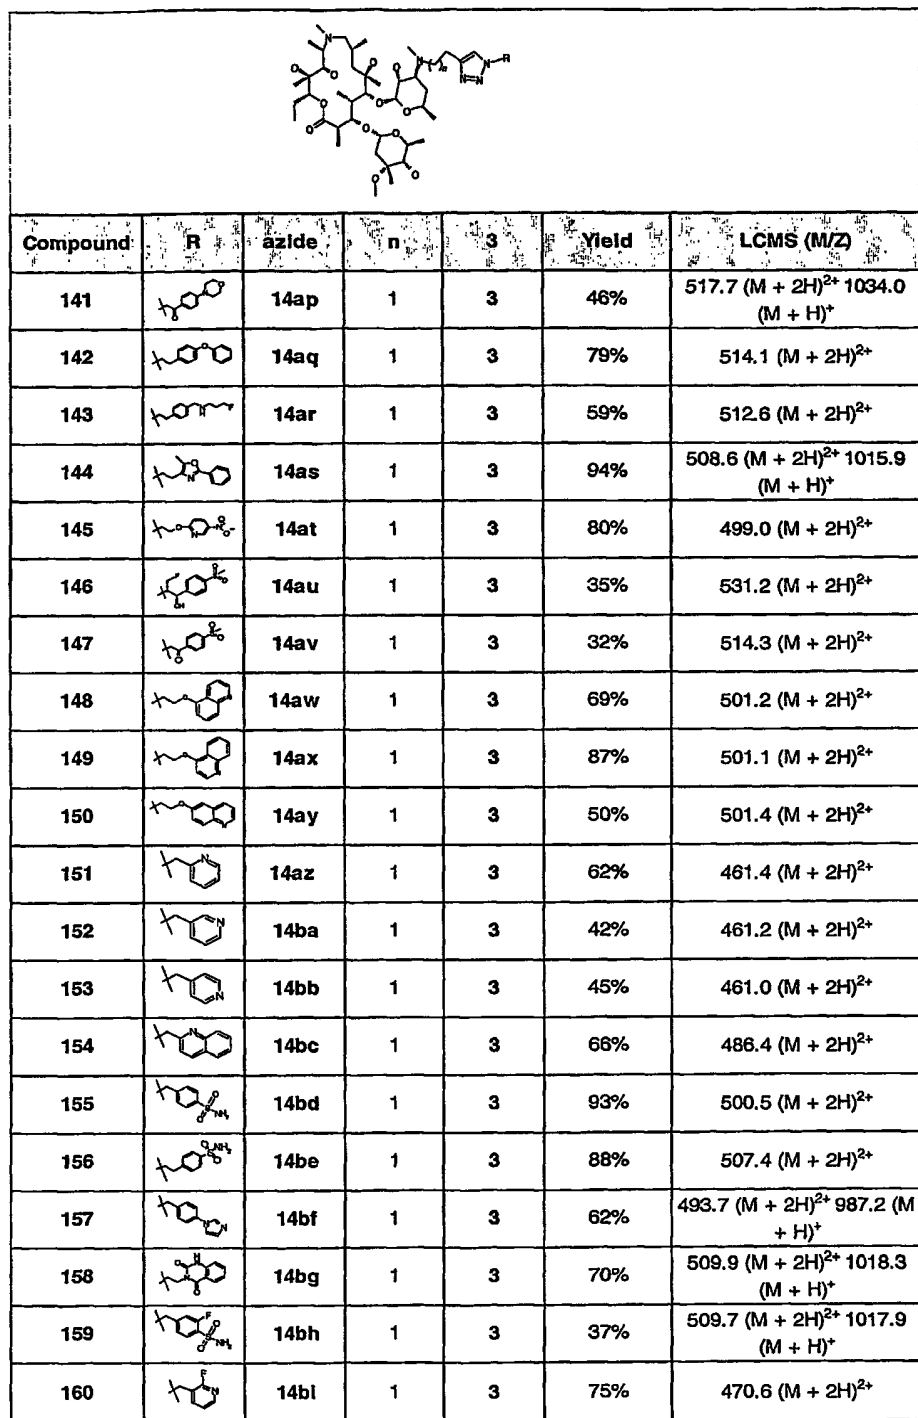 Compound R azide n 3 Yield LCMS (M/Z)
141 14ap 1 3 46% 517.7 (M + 2H)²⁺ 1034.0 (M + H)⁺
142 14aq 1 3 79% 514.1 (M + 2H)²⁺
143 14ar 1 3 59% 512.6 (M + 2H)²⁺
144 14as 1 3 94% 508.6 (M + 2H)²⁺ 1015.9 (M + H)⁺
145 14at 1 3 80% 499.0 (M + 2H)²⁺
146 14au 1 3 35% 531.2 (M + 2H)²⁺
147 14av 1 3 32% 514.3 (M + 2H)²⁺
148 14aw 1 3 69% 501.2 (M + 2H)²⁺
149 14ax 1 3 87% 501.1 (M + 2H)²⁺
150 14ay 1 3 50% 501.4 (M + 2H)²⁺
151 14az 1 3 62% 461.4 (M + 2H)²⁺
152 14ba 1 3 42% 461.2 (M + 2H)²⁺
153 14bb 1 3 45% 461.0 (M + 2H)²⁺
154 14bc 1 3 66% 486.4 (M + 2H)²⁺
155 14bd 1 3 93% 500.5 (M + 2H)²⁺
156 14be 1 3 88% 507.4 (M + 2H)²⁺
157 14bf 1 3 62% 493.7 (M + 2H)²⁺ 987.2 (M + H)⁺
158 14bg 1 3 70% 509.9 (M + 2H)²⁺ 1018.3 (M + H)⁺
159 14bh 1 3 37% 509.7 (M + 2H)²⁺ 1017.9 (M + H)⁺
160 14bl 1 3 75% 470.6 (M + 2H)²⁺